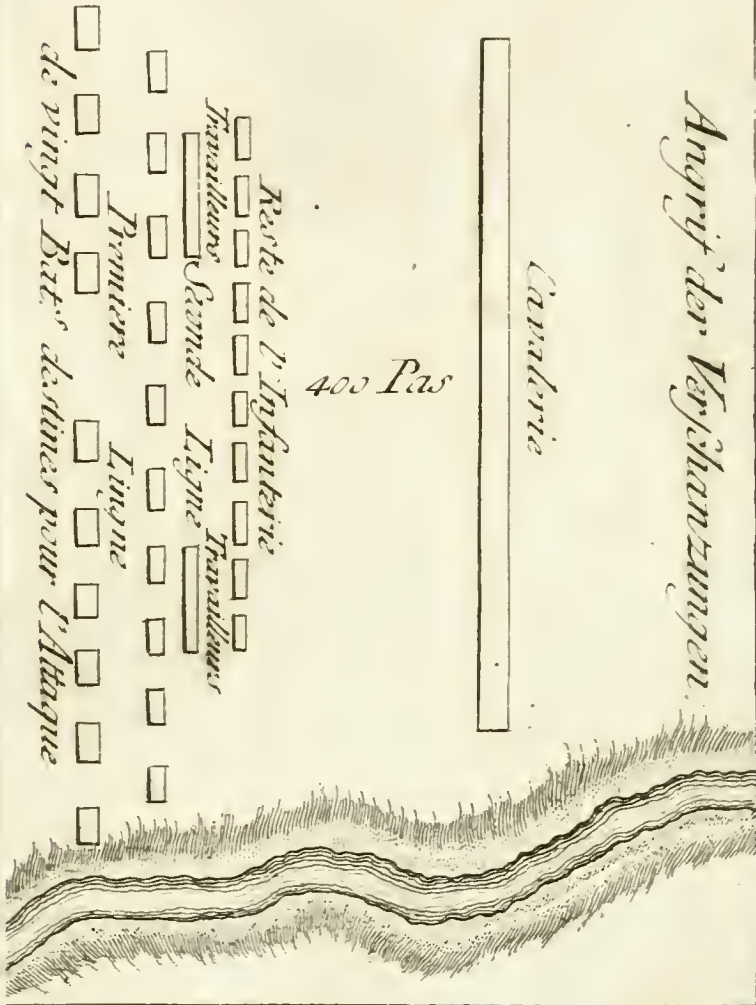 Angrif der Verschanzungen.
Cavalerie
400 Pas
Reste de l'Infanterie
Travailleurs Travailleurs
Seconde Ligne
Premiere Lingne
de vingt Bat.s destinés pour l'Attaque